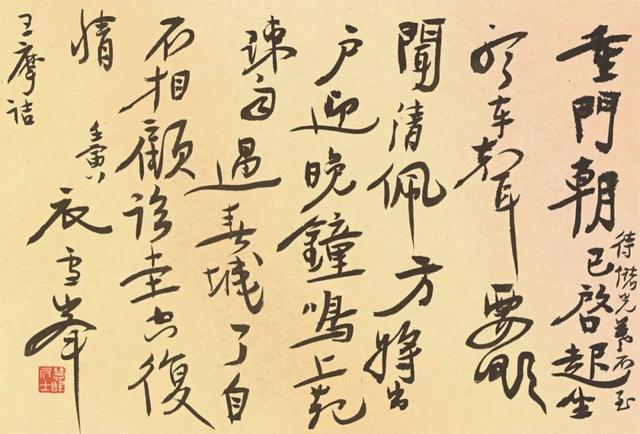 重門朝已啓起坐
待儲光羲不至
聽車聲要欲
聞清佩方將出
户迎晚鐘鳴上苑
疎雨過春城了自
不相顧臨堂空復
情
壬寅
衣雪峯
王摩詰